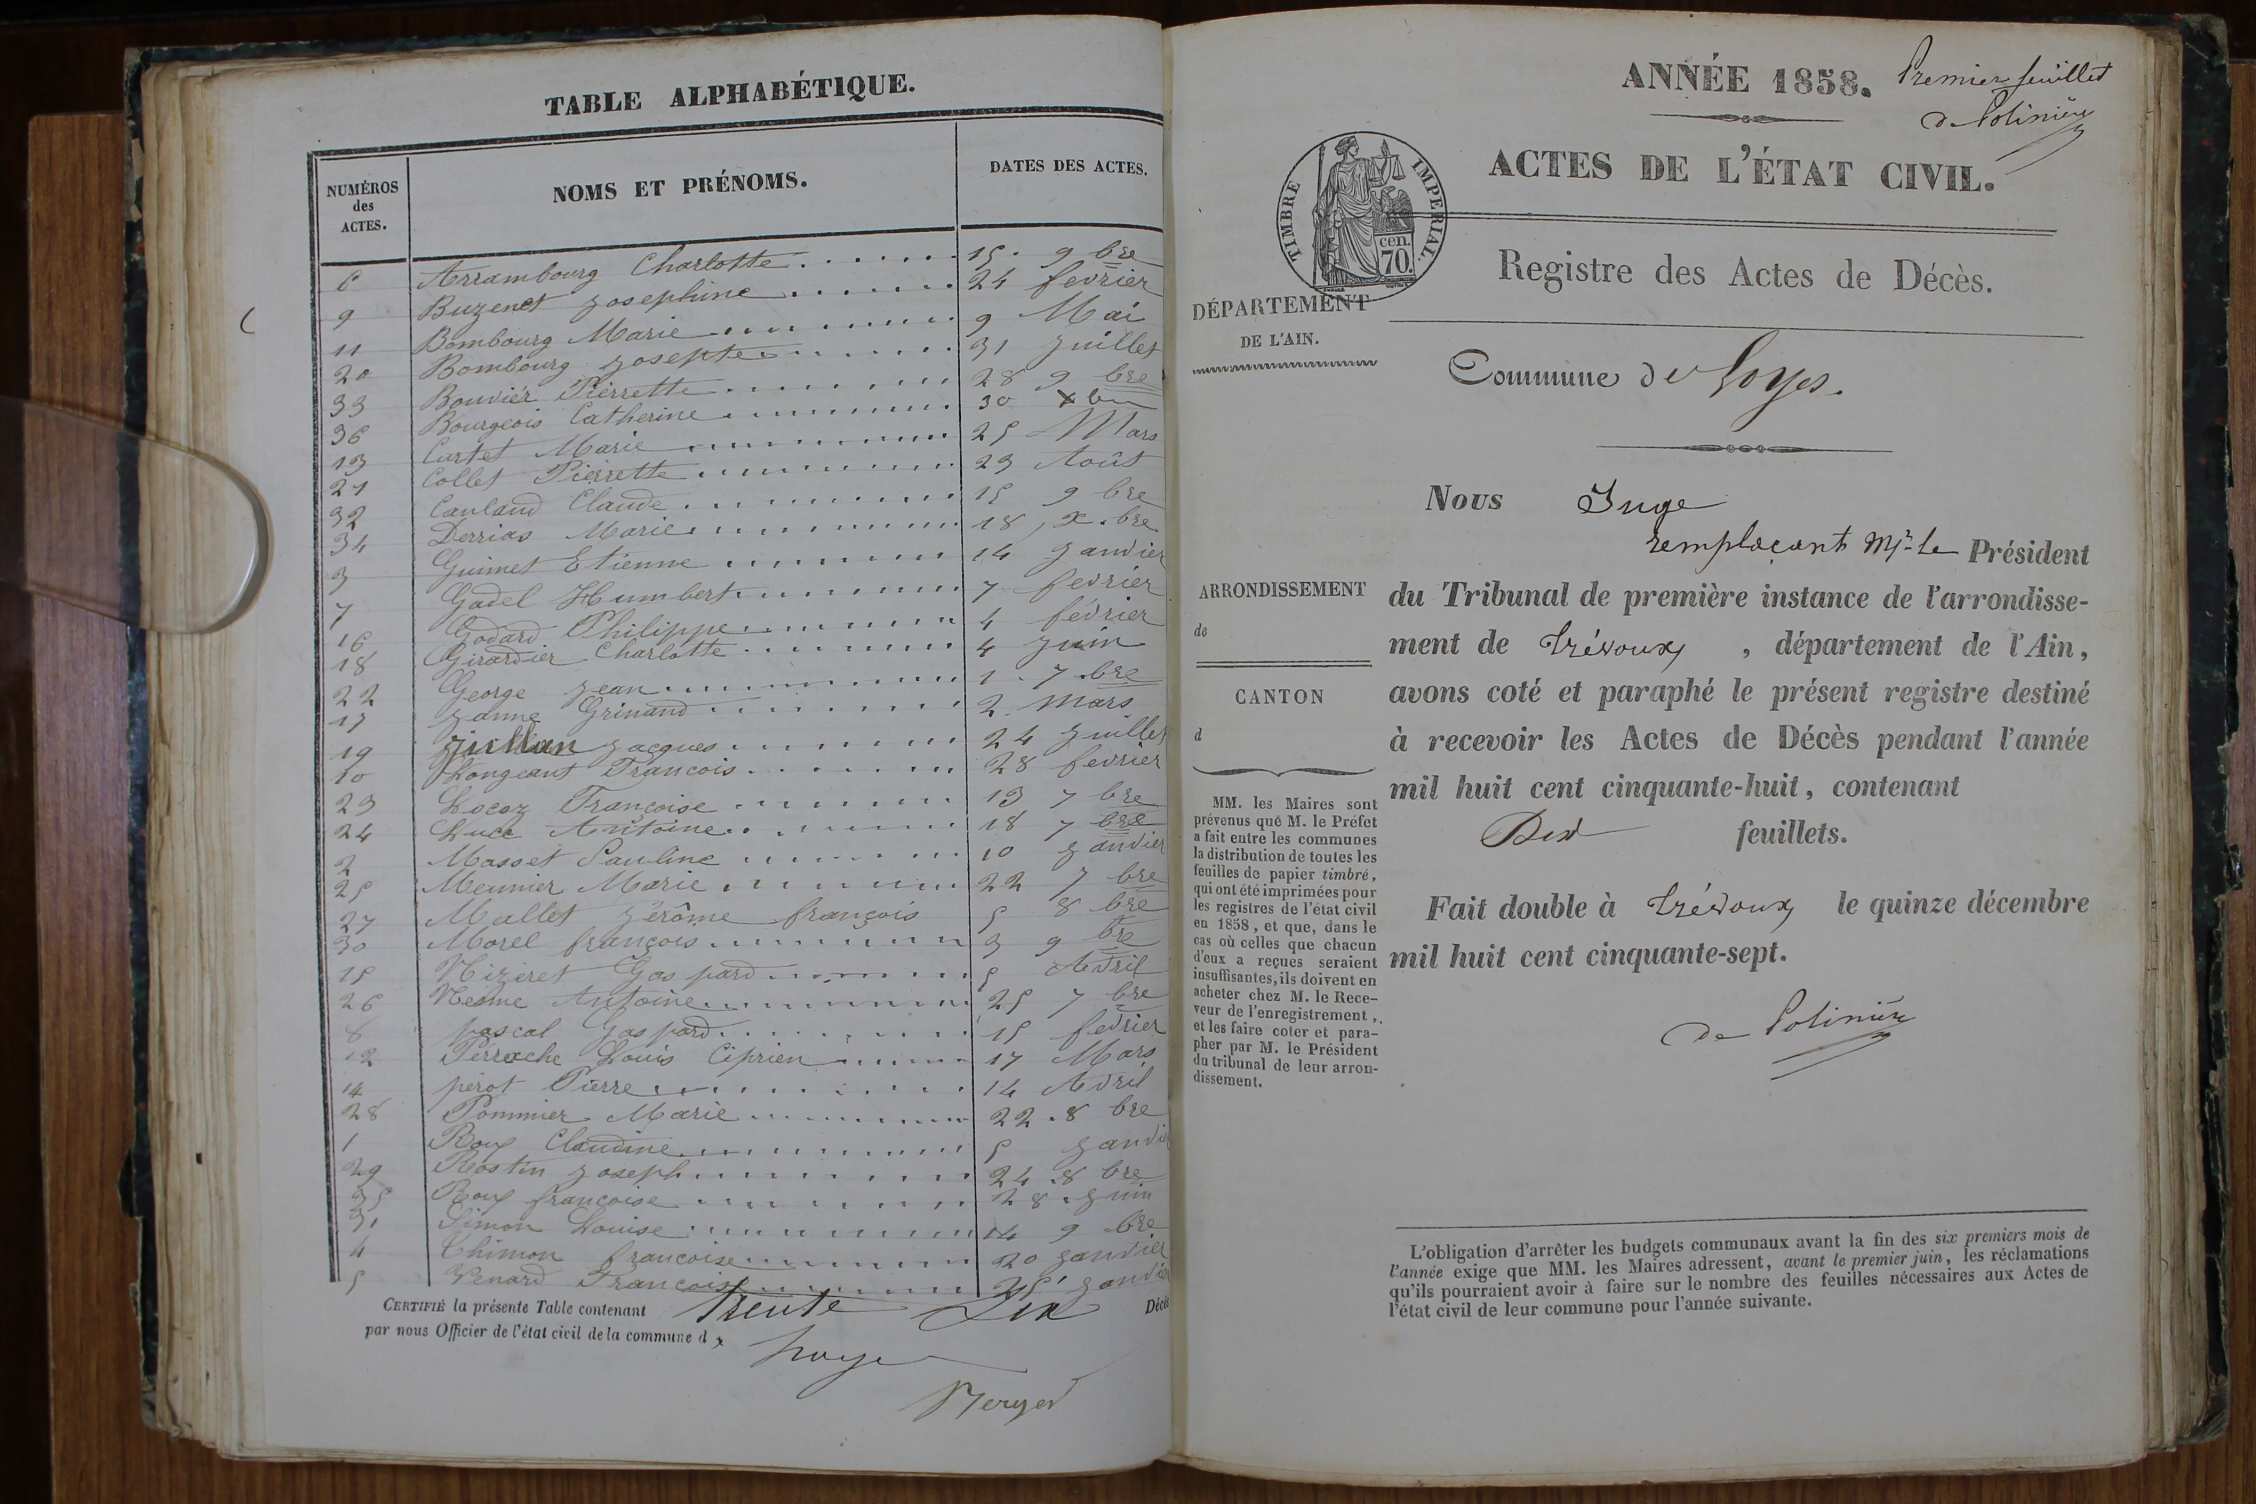 TABLE ALPHABÉTIQUE.
NUMÉROS des ACTES. NOMS ET PRÉNOMS. DATES DES ACTES.
6 Arrambourg Charlotte 15. 9 bre
9 Buzenet Josephine 24 fevrier
11 Bombourg Marie 9 Mai
20 Bombourg Josepte 31 Juillet
33 Bouvier Pierrette 28 9 bre
36 Bourgeois Catherine 30 X bre
13 Curtet Marie 25 Mars
21 Collet Pierrette 23 Août
32 Cauland Claude 15 9 bre
34 Derrias Marie 18, x. bre
3 Guimet Etienne 14 Janvier
7 Gadel Humbert 7 fevrier
16 Godard Philippe 4 février
18 Girardier Charlotte 4 Juin
22 George Jean 1. 7 bre
17 Janne Grinand 2 Mars
19 Jullian Jacques 24 Juillet
10 Longeant Francois 28 fevrier
23 Locoz Françoise 13 7 bre
24 Luce Antoine 18 7 bre
2 Masset Pauline 10 Janvier
25 Meunier Marie 22 7 bre
27 Mallet Jérôme françois 5 8 bre
30 Morel françois 3 9 bre
15 Nizeret Gaspard 5 Avril
26 Nesme Antoine 25 7 bre
8 pascal Gaspard 15 fevrier
12 Perrache Louis Ciprien 17 Mars
14 perot Pierre 14 Avril
28 Pommier Marie 22. 8 bre
1 Roux Claudine 5 Janvier
29 Rostin Joseph 24. 8 bre
35 Roux françoise 28. Juin
31 Simon Louise 14 9 bre
4 Thimon françoise 20 Janvier
5 Venard Francoise 25 Janvier
CERTIFIÉ la présente Table contenant trente six Décès
par nous Officier de l'état civil de la commune d
ANNÉE 1858. Premier feuillet
de Polinière
TIMBRE IMPERIAL.
cen. 70.
ACTES DE L'ÉTAT CIVIL.
Registre des Actes de Décès.
DÉPARTEMENT
DE L'AIN.
Commune de Loyes.
ARRONDISSEMENT
de
CANTON
d
MM. les Maires sont
prévenus que M. le Préfet
a fait entre les communes
la distribution de toutes les
feuilles de papier timbré,
qui ont été imprimées pour
les registres de l'état civil
en 1858, et que, dans le
cas où celles que chacun
d'eux a reçues seraient
insuffisantes, ils doivent en
acheter chez M. le Rece-
veur de l'enregistrement,
et les faire coter et para-
pher par M. le Président
du tribunal de leur arron-
dissement.
Nous Juge
remplaçant Mr. le Président
du Tribunal de première instance de l'arrondisse-
ment de Trévoux, département de l'Ain,
avons coté et paraphé le présent registre destiné
à recevoir les Actes de Décès pendant l'année
mil huit cent cinquante-huit, contenant
Dix feuillets.
Fait double à Trévoux le quinze décembre
mil huit cent cinquante-sept.
de Polinière
L'obligation d'arrêter les budgets communaux avant la fin des six premiers mois de
l'année exige que MM. les Maires adressent, avant le premier juin, les réclamations
qu'ils pourraient avoir à faire sur le nombre des feuilles nécessaires aux Actes de
l'état civil de leur commune pour l'année suivante.